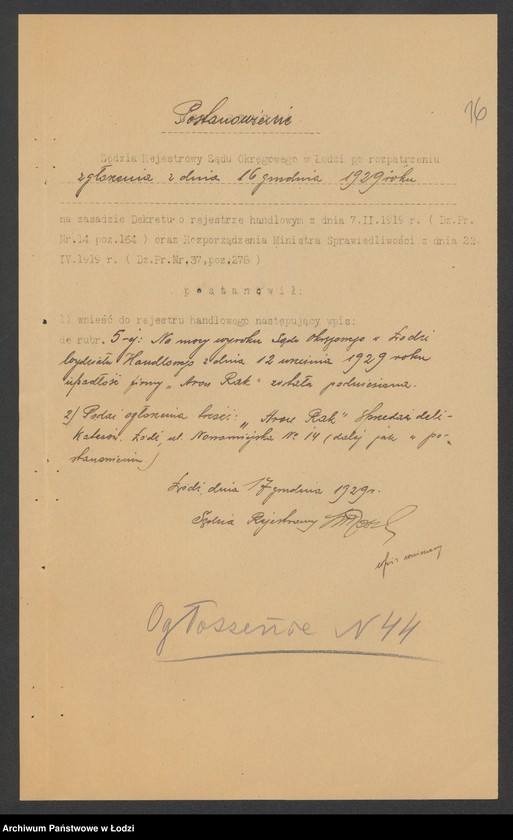 16
Postanowienie
Sędzia Rejestrowy Sądu Okręgowego w Łodzi po rozpatrzeniu
zgłoszenia z dnia 16 grudnia 1929 roku
na zasadzie Dekretu o rejestrze handlowym z dnia 7.II.1919 r. ( Dz.Pr.
Nr.14 poz.164 ) oraz Rozporządzenia Ministra Sprawiedliwości z dnia 22
IV.1919 r. ( Dz.Pr.Nr.37,poz.278 )
p o s t a n o w i ł:
1) wnieść do rejestru handlowego następujący wpis:
do rubr. 5-ej: Na mocy wyroku Sądu Okręgowego w Łodzi
Wydziału Handlowego z dnia 12 września 1929 roku
upadłość firmy „Aron Rak" została podniesiona.
2) Podać ogłoszenia treść: „Aron Rak" Sprzedaż deli-
katesów. Łódź, ul. Nowomiejska № 14 (dalej jak w po-
stanowieniu)
Łódź, dnia 17 grudnia 1929 r.
Sędzia Rejestrowy
wpis
Ogłoszenie N 44
Archiwum Państwowe w Łodzi